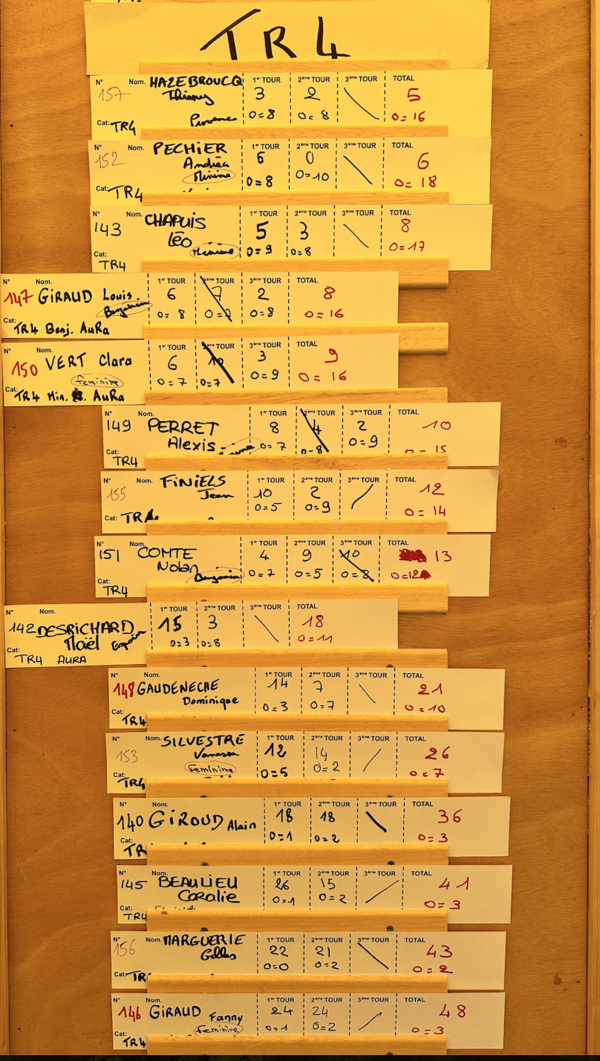 TR4
N° Nom. HAZEBROUCQ 1er TOUR 2ème TOUR 3ème TOUR TOTAL
157 Thierry 3 2 5
Provence 0=8 0=8 0=16
Cat: TR4
N° Nom. PECHIER 1er TOUR 2ème TOUR 3ème TOUR TOTAL
152 Andréa 6 0 6
Minime 0=8 0=10 0=18
Cat: TR4
N° Nom. CHAPUIS 1er TOUR 2ème TOUR 3ème TOUR TOTAL
143 Léo 5 3 8
Minime 0=9 0=8 0=17
Cat: TR4
N° Nom. 1er TOUR 2ème TOUR 3ème TOUR TOTAL
147 GIRAUD Louis 6 2 8
Benjamin 0=8 0=8 0=16
Cat: TR4 Benj. AuRa
N° Nom. 1er TOUR 2ème TOUR 3ème TOUR TOTAL
150 VERT Clara 6 10 3 9
feminine 0=7 0=7 0=9 0=16
Cat: TR4 Min. AuRa
N° Nom. 1er TOUR 2ème TOUR 3ème TOUR TOTAL
149 PERRET 8 4 2 10
Alexis 0=7 0=8 0=9 0=15
Cat: TR4
N° Nom. FINIELS 1er TOUR 2ème TOUR 3ème TOUR TOTAL
155 Jean 10 2 12
0=5 0=9 0=14
Cat: TR4
N° Nom. 1er TOUR 2ème TOUR 3ème TOUR TOTAL
151 COMTE 4 9 10 13
Nolan Benjamin 0=7 0=5 0=8 0=12
Cat: TR4
N° Nom. 1er TOUR 2ème TOUR 3ème TOUR TOTAL
142 DESRICHARD 15 3 18
Maël 0=3 0=8 0=11
Cat: TR4 AURA
N° Nom. 1er TOUR 2ème TOUR 3ème TOUR TOTAL
148 GAUDENECHE 14 7 21
Dominique 0=3 0=7 0=10
Cat: TR4
N° Nom. SILVESTRE 1er TOUR 2ème TOUR 3ème TOUR TOTAL
153 Vanessa 12 14 26
Feminine 0=5 0=2 0=7
Cat: TR4
N° Nom. 1er TOUR 2ème TOUR 3ème TOUR TOTAL
140 GIROUD Alain 18 18 36
0=1 0=2 0=3
Cat: TR
N° Nom. 1er TOUR 2ème TOUR 3ème TOUR TOTAL
145 BEAULIEU 26 15 41
Coralie 0=1 0=2 0=3
Cat: TR4
N° Nom. MARGUERIE 1er TOUR 2ème TOUR 3ème TOUR TOTAL
156 Gilles 22 21 43
0=0 0=2 0=2
Cat: TR
N° Nom. 1er TOUR 2ème TOUR 3ème TOUR TOTAL
146 GIRAUD Fanny 24 24 48
Feminine 0=1 0=2 0=3
Cat: TR4